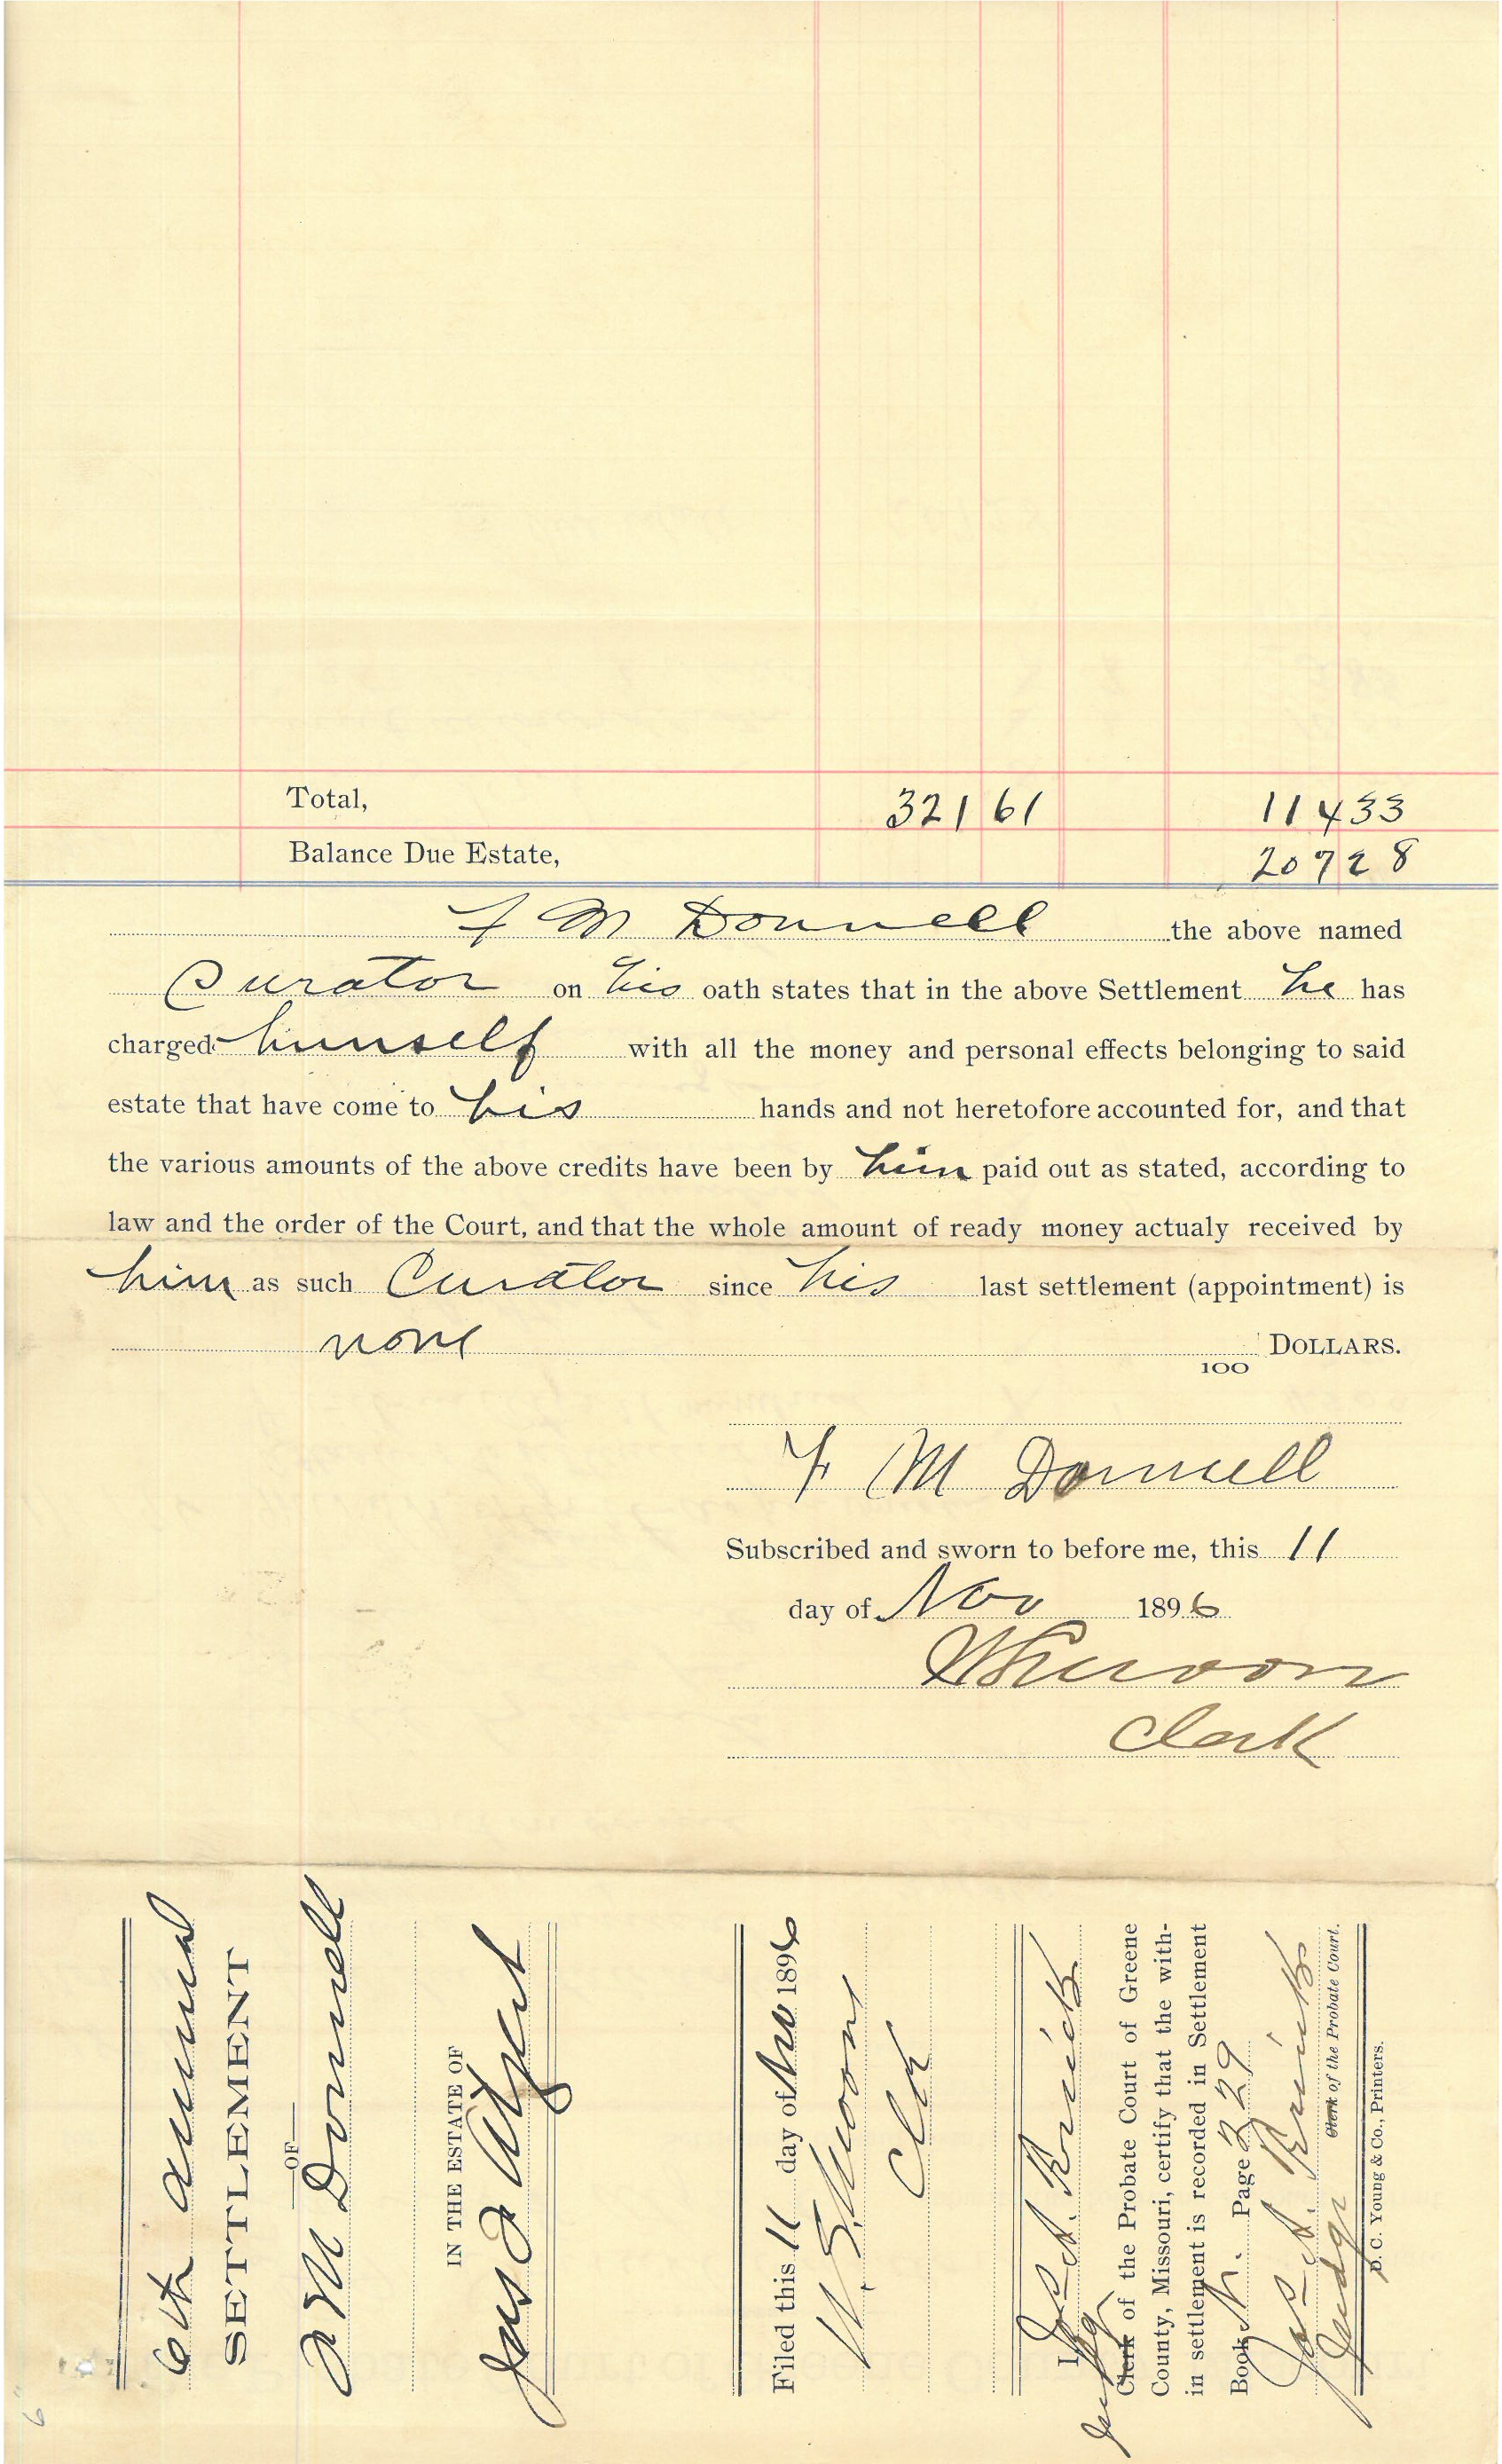 Total, 321 61 114 33
Balance Due Estate, 207 28
F M Donnell the above named
Curator on his oath states that in the above Settlement he has
charged himself with all the money and personal effects belonging to said
estate that have come to his hands and not heretofore accounted for, and that
the various amounts of the above credits have been by him paid out as stated, according to
law and the order of the Court, and that the whole amount of ready money actualy received by
him as such Curator since his last settlement (appointment) is
none 100 DOLLARS.
F M Donnell
Subscribed and sworn to before me, this 11
day of Nov 1896
Clerk
6th annual
SETTLEMENT
OF
F M Donnell
IN THE ESTATE OF
Filed this 11 day of Nov 1896
Clk
I,
Judge
Clerk of the Probate Court of Greene
County, Missouri, certify that the with-
in settlement is recorded in Settlement
Book Page 329
Judge Clerk of the Probate Court.
D. C. Young & Co., Printers.